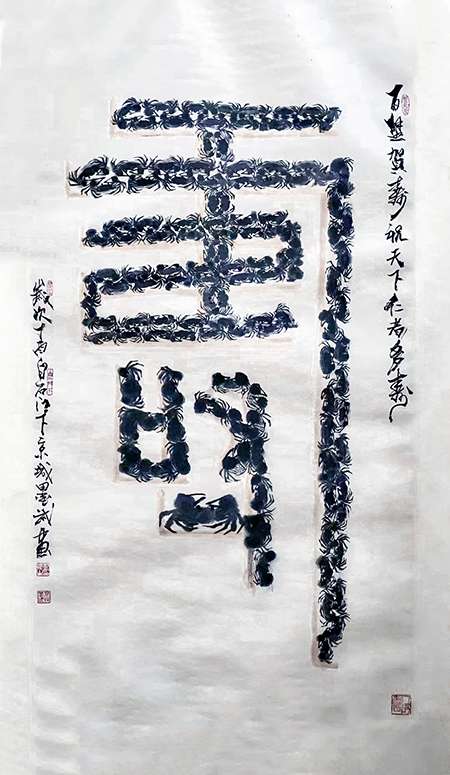 壽
百蟹贺寿祝天下仁者多寿
岁次丁酉白石门下京城墨武画